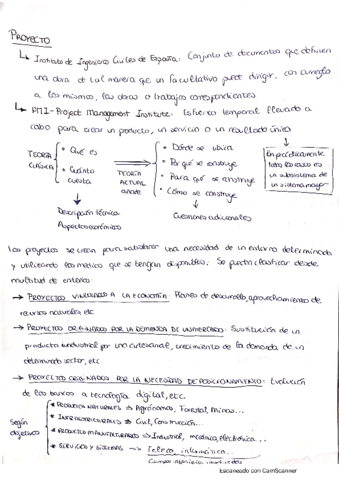 PROYECTO
↳ Instituto de Ingenieros Civiles de España: Conjunto de documentos que definen
una obra de tal manera que un facultativo puede dirigir, con arreglo
a los mismos, las obras o trabajos correspondientes
↳ PMI - Project Management Institute: Esfuerzo temporal llevado a
cabo para crear un producto, un servicio o un resultado único
TEORÍA CLÁSICA
• Qué es
• Cuánto cuesta
Descripción técnica
Aspectos económicos
TEORÍA ACTUAL añade
• Dónde se ubica
• Por qué se construye
• Para qué se construye
• Cómo se construye
Cuestiones adicionales
En prácticamente
todos los casos es
un subsistema de
un sistema mayor
Los proyectos se crean para satisfacer una necesidad de un entorno determinado
y utilizando los medios que se tengan disponibles. Se pueden clasificar desde
multitud de criterios:
→ PROYECTOS VINCULADOS A LA ECONOMÍA: Planes de desarrollo, aprovechamiento de
recursos naturales, etc
→ PROYECTOS ORIGINADOS POR LA DEMANDA DE UN MERCADO: Sustitución de un
producto industrial por uno artesanal, crecimiento de la demanda de un
determinado sector, etc.
→ PROYECTOS ORIGINADOS POR LA NECESIDAD DE POSICIONAMIENTO: Evolución
de los bancos a tecnología digital, etc.
Según objetivos
• RECURSOS NATURALES → Agrónomos, Forestal, Minas...
• INFRAESTRUCTURALES → Civil, Construcción...
• PRODUCTO MANUFACTURADO → Industrial, mecánica, electrónica...
• SERVICIOS Y SISTEMAS → Teleco, informática...
Escaneado con CamScanner